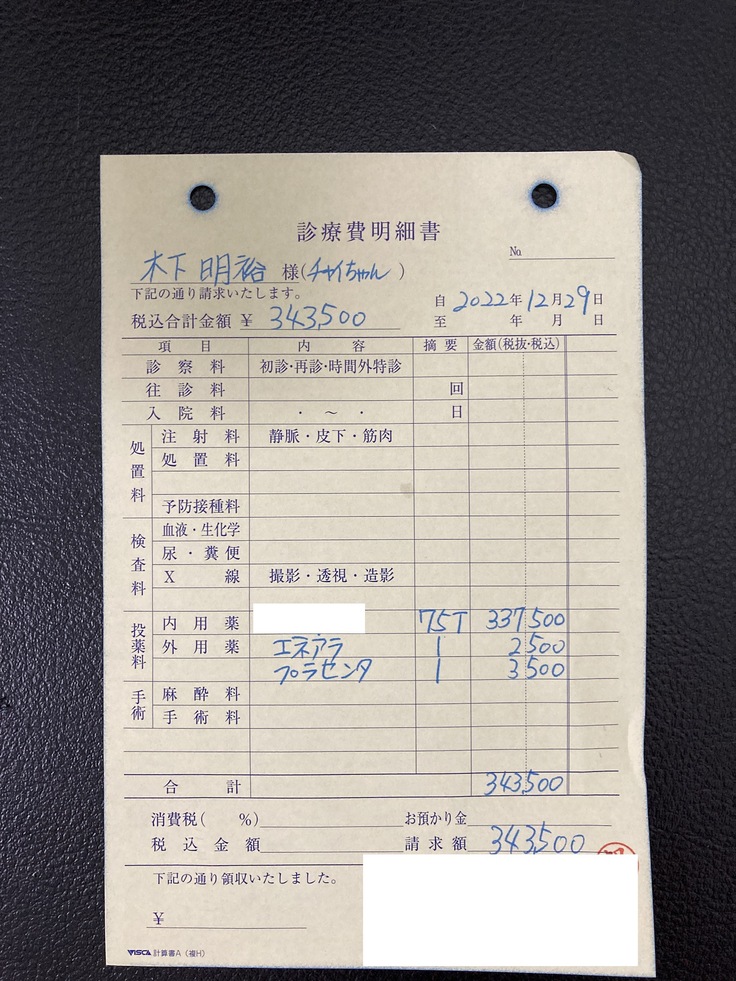 診療費明細書
No
木下 明裕 様(チャイちゃん)
下記の通り請求いたします。
自 2022年12月29日
税込合計金額 ¥ 343,500
至 年 月 日
項目 内容 摘要 金額(税抜・税込)
診察料 初診・再診・時間外特診
往診料 回
入院料 ・ ～ ・ 日
処置料
注射料 静脈・皮下・筋肉
処置料
予防接種料
検査料
血液・生化学
尿・糞便
X線 撮影・透視・造影
投薬料
内用薬 75T 337,500
外用薬 エネアラ 1 2,500
プラセンタ 1 3,500
手術
麻酔料
手術料
合計 343,500
消費税( %) お預かり金
税込金額 請求額 343,500
下記の通り領収いたしました。
¥
VISCA 計算書A(複H)